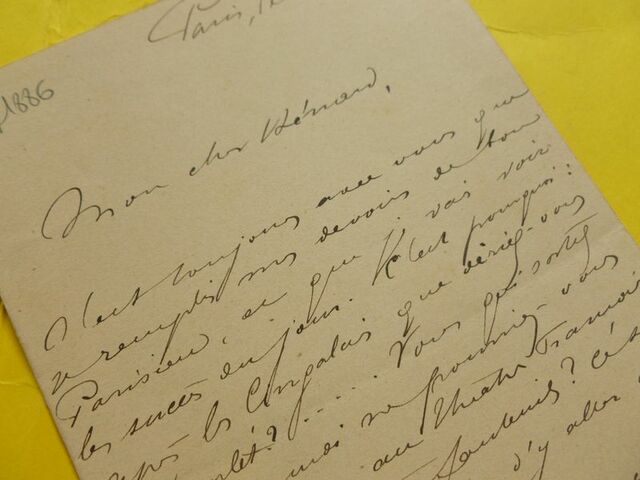 Paris,
1886
Mon cher Bénard,
C'est toujours avec vous que
je remplis mes devoirs de bon
Parisien, et que je vais voir
les succès du jour. C'est pourquoi:
après les Cingalais que diriez-vous
Vous qui sortez
ne pourriez-vous
au théâtre
fauteuil? C'est
d'y aller